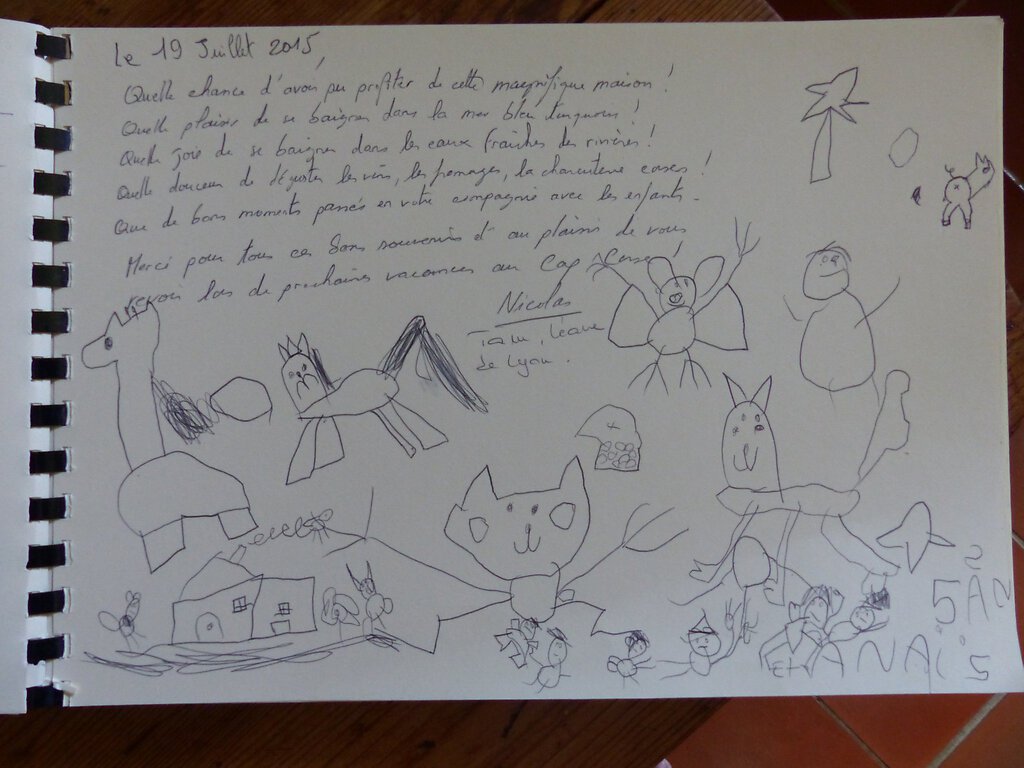 Le 19 Juillet 2015,
Quelle chance d'avoir pu profiter de cette magnifique maison !
Quelle plaisir de se baigner dans la mer bleu turquoise !
Quelle joie de se baigner dans les eaux fraîches des rivières !
Quelle douceur de déguster les vins, les fromages, la charcuterie corses !
Que de bons moments passés en votre compagnie avec les enfants.
Merci pour tous ces bons souvenirs et au plaisir de vous
revoir lors de prochaines vacances au Cap Corse !
Nicolas
de Lyon.
5